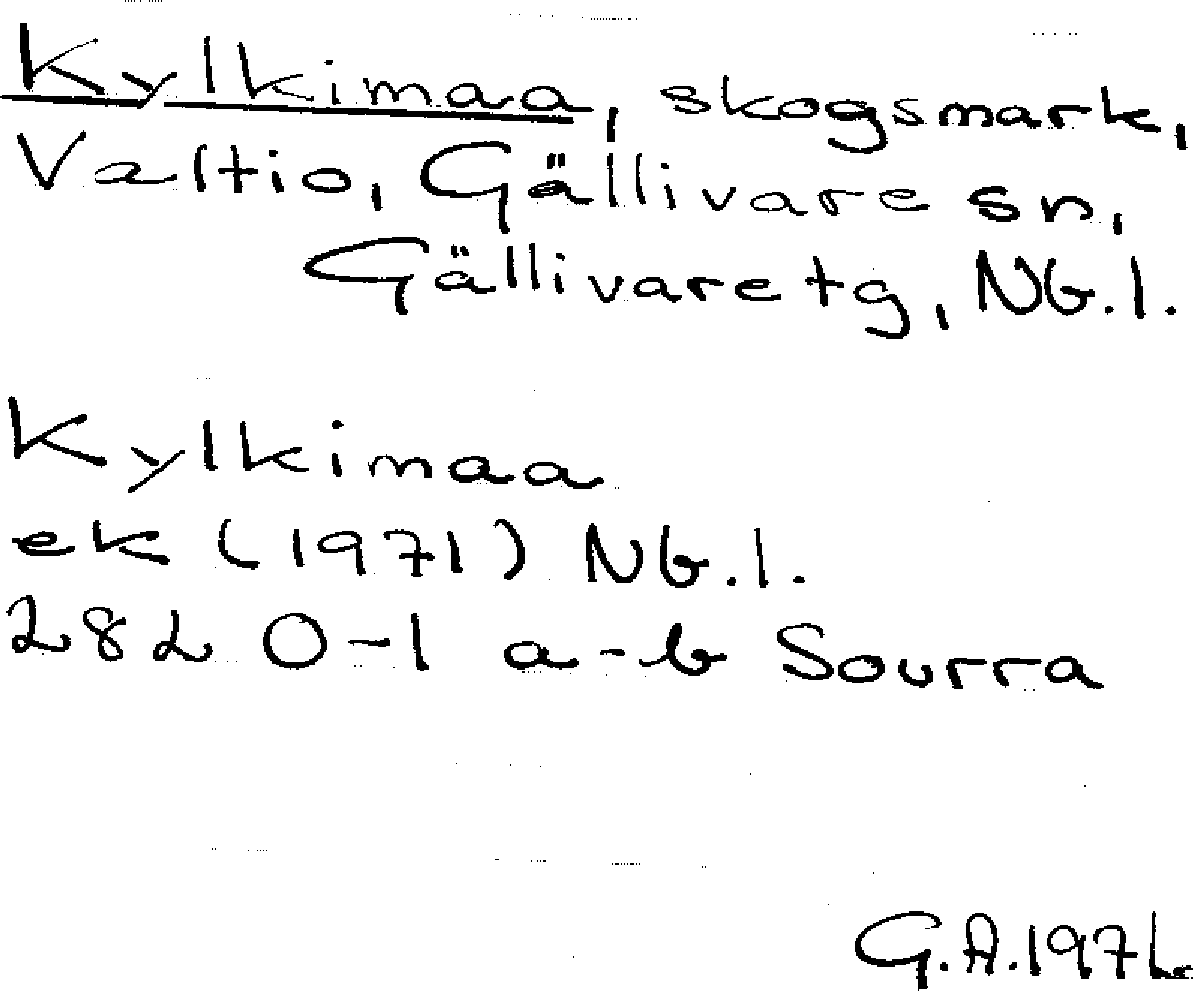 Kylkimaa, skogsmark,
Valtio, Gällivare sn,
Gällivare tg, Nb.l.
Kylkimaa
ek (1971) Nb.l.
282 0-1 a-b Sourra
G.A.1971.